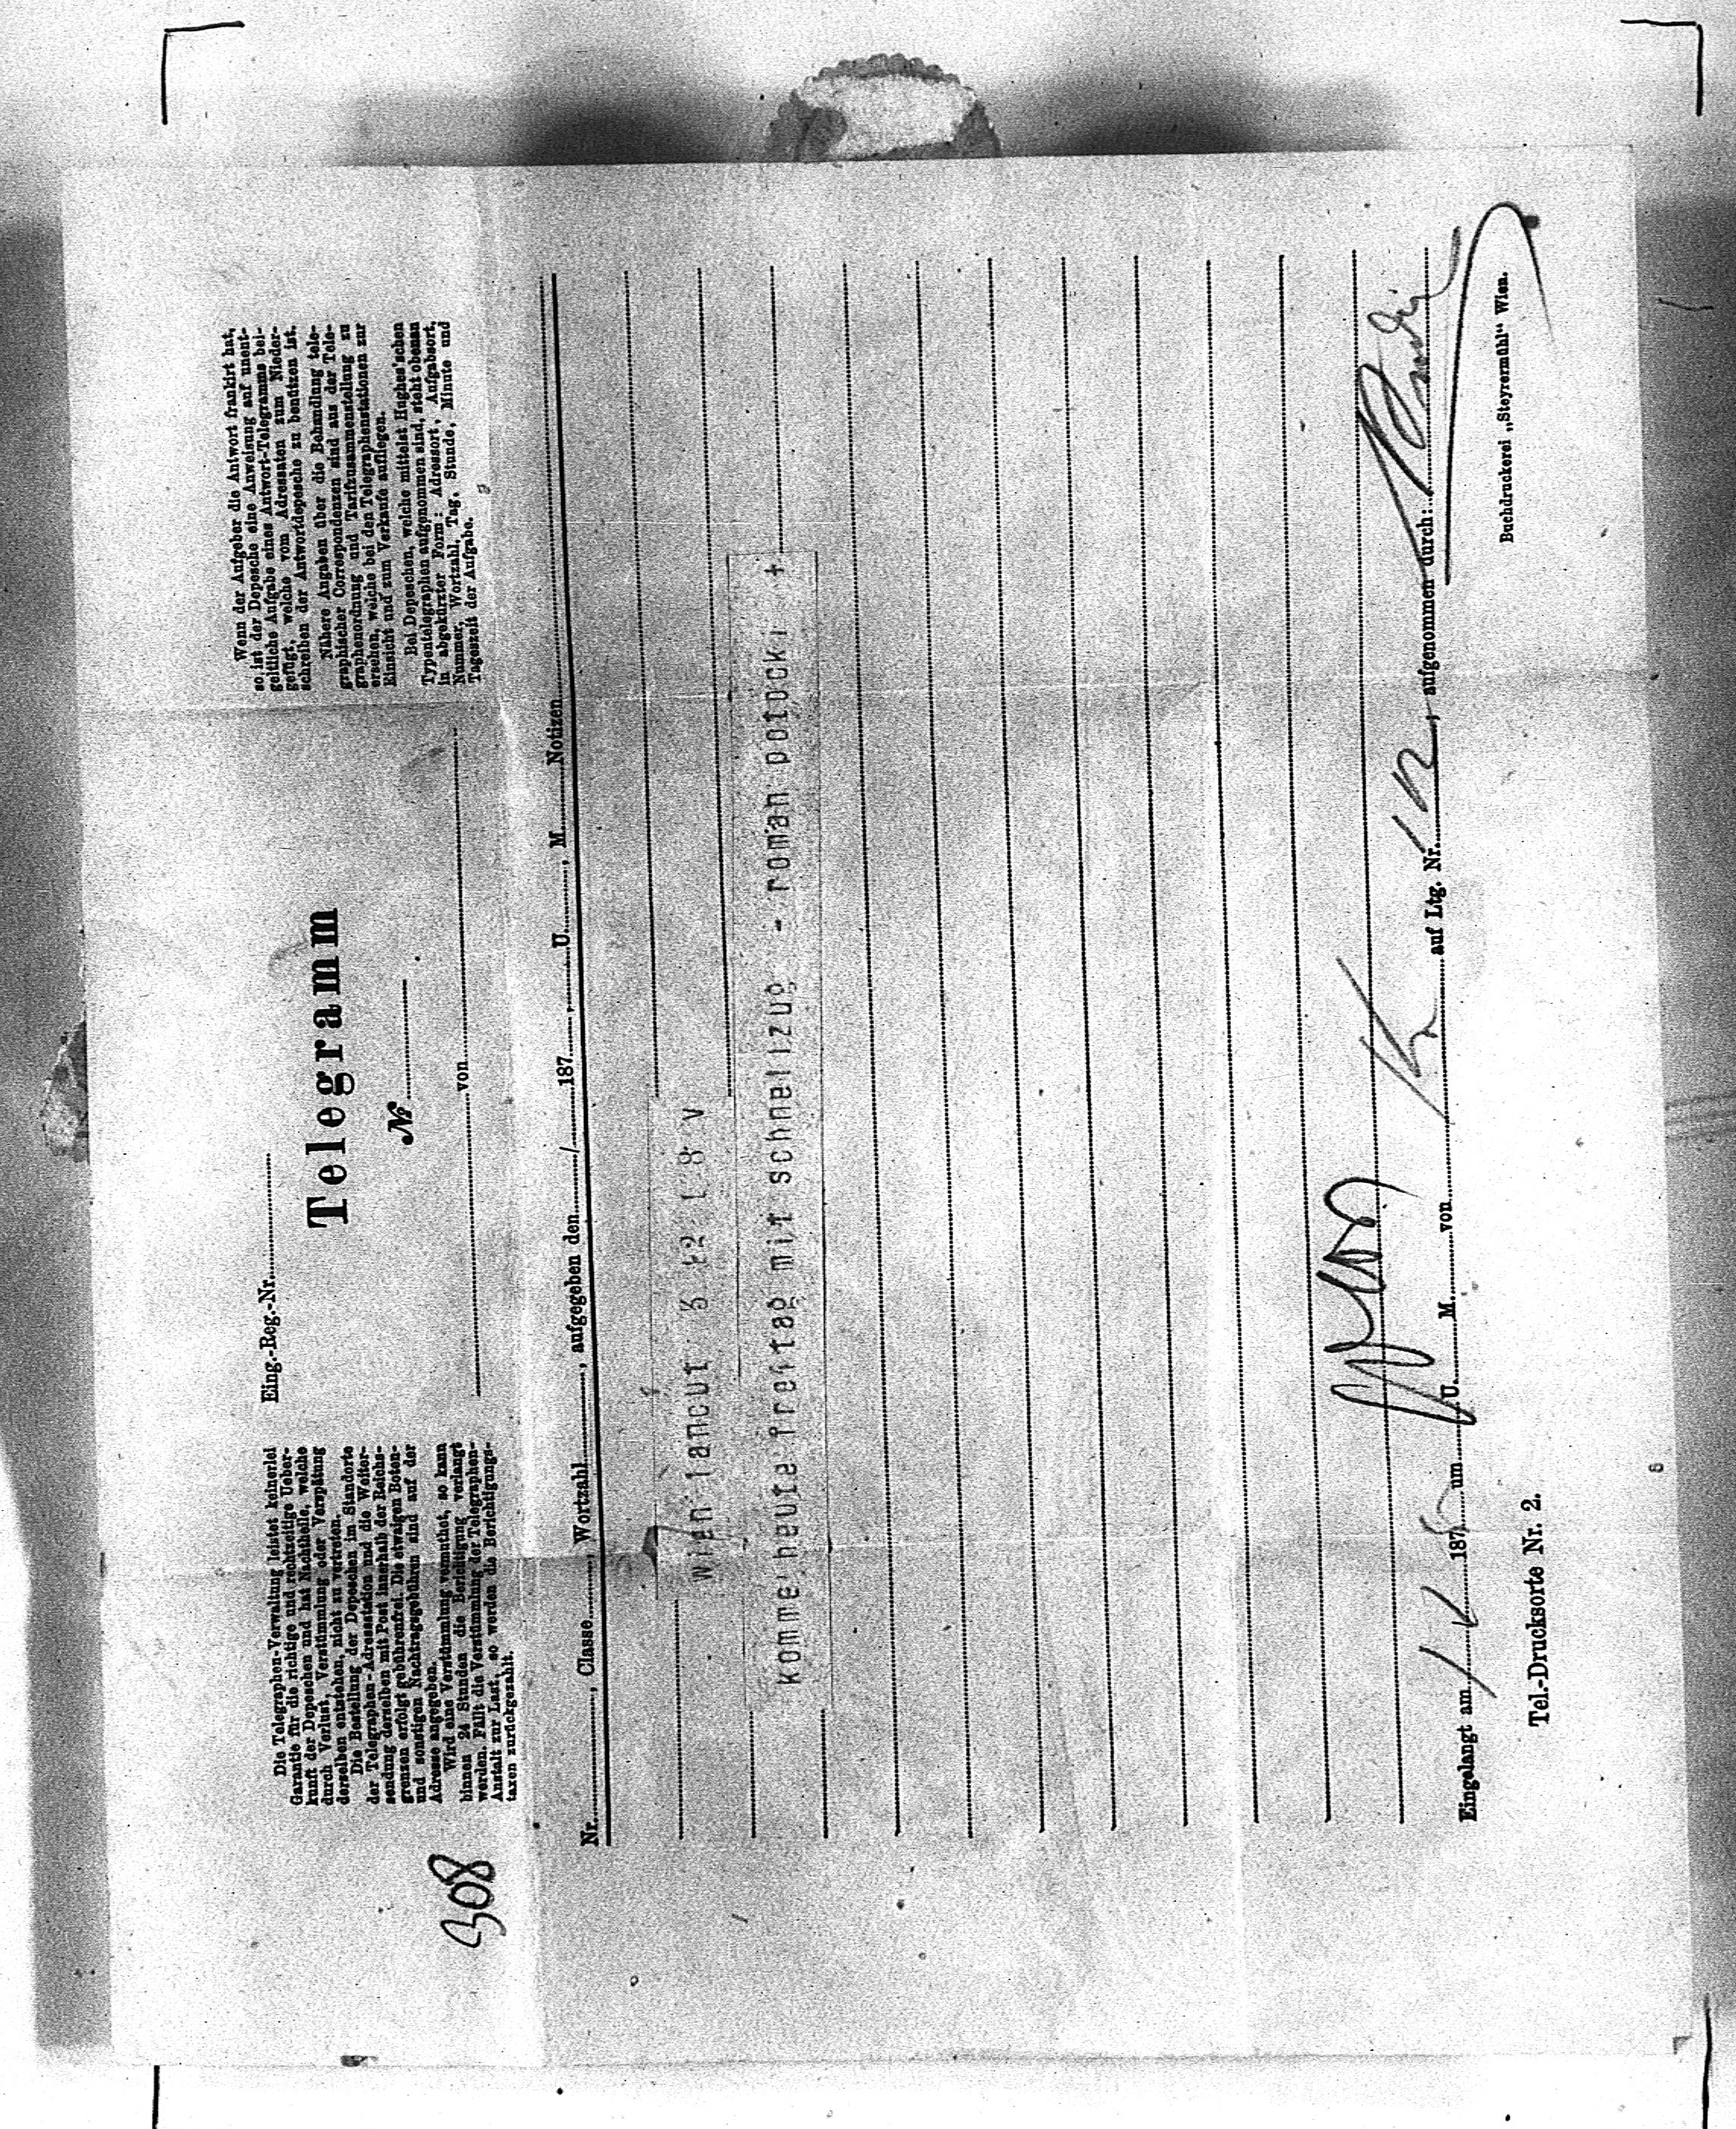 308
Die Telegraphen-Verwaltung leistet keinerlei
Garantie für die richtige und rechtzeitige Ueber-
kunft der Depeschen und hat Nachtheile, welche
durch Verlust, Verstümmlung oder Verspätung
derselben entstehen, nicht zu vertreten.
Die Bestellung der Depeschen im Standorte
der Telegraphen-Adressstation und die Weiter-
sendung derselben mit Post innerhalb der Reichs-
grenzen erfolgt gebührenfrei. Die etwaigen Boten-
und sonstigen Nachtragsgebühren sind auf der
Adresse angegeben.
Wird eine Verstümmlung vermuthet, so kann
binnen 24 Stunden die Berichtigung verlangt
werden. Fällt die Verstümmlung der Telegraphen-
Anstalt zur Last, so werden die Berichtigungs-
taxen zurückgezahlt.
Eing.-Reg.-Nr.
Telegramm
Nr
von
Wenn der Aufgeber die Antwort frankirt hat,
so ist der Depesche eine Anweisung auf unent-
geltliche Aufgabe eines Antwort-Telegramms bei-
gefügt, welche vom Adressaten zum Nieder-
schreiben der Antwortdepesche zu benützen ist.
Nähere Angaben über die Behandlung tele-
graphischer Correspondenzen sind aus der Tele-
graphenordnung und Tarifzusammenstellung zu
ersehen, welche bei den Telegraphenstationen zur
Einsicht und zum Verkaufe aufliegen.
Bei Depeschen, welche mittelst Hughes'schen
Typentelegraphen aufgenommen sind, steht obenan
in abgekürzter Form: Adressort, Aufgabsort,
Nummer, Wortzahl, Tag, Stunde, Minute und
Tageszeit der Aufgabe.
Nr. , Classe , Wortzahl , aufgegeben den / 187 , U. , M. Notizen
wien lancut 8 v
komme heute freitag mit schnellzug - roman potocki +
Eingelangt am 187 um U. M. von auf Ltg. Nr. , aufgenommen durch:
Tel.-Drucksorte Nr. 2.
Buchdruckerei „Steyrermühl“ Wien.